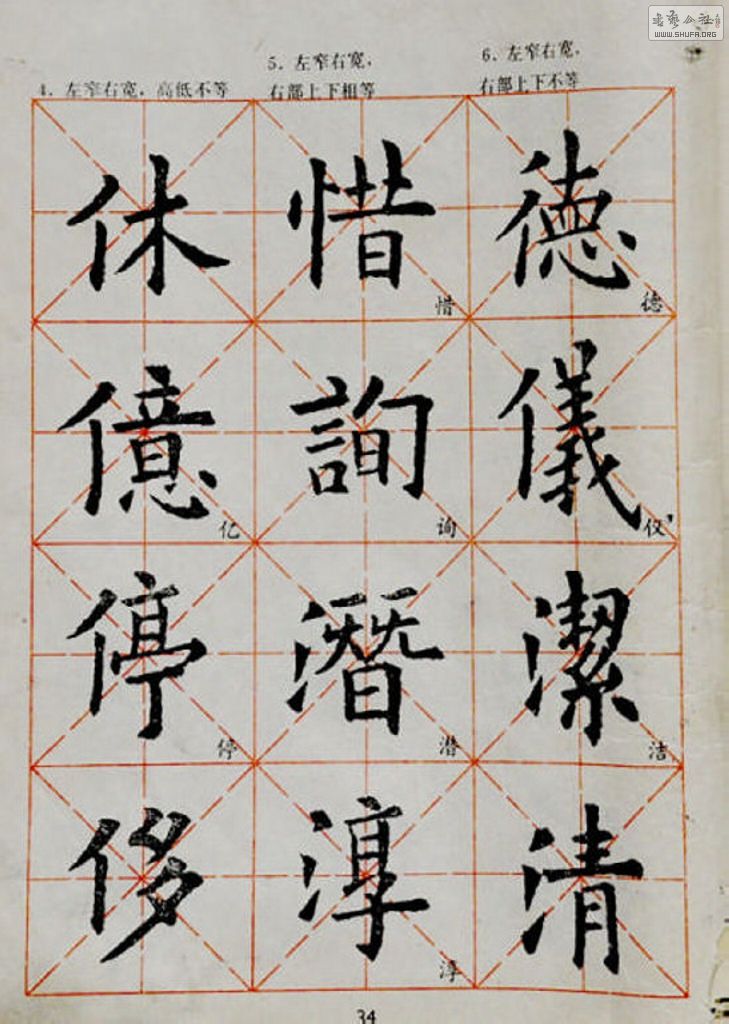 书艺公社
WWW.SHUFA.ORG
4. 左窄右宽，高低不等
5. 左窄右宽，
右部上下相等
6. 左窄右宽，
右部上下不等
休 惜 德
惜 德
億 詢 儀
亿 询 仪
停 潛 潔
停 潜 洁
侈 淳 清
淳
34